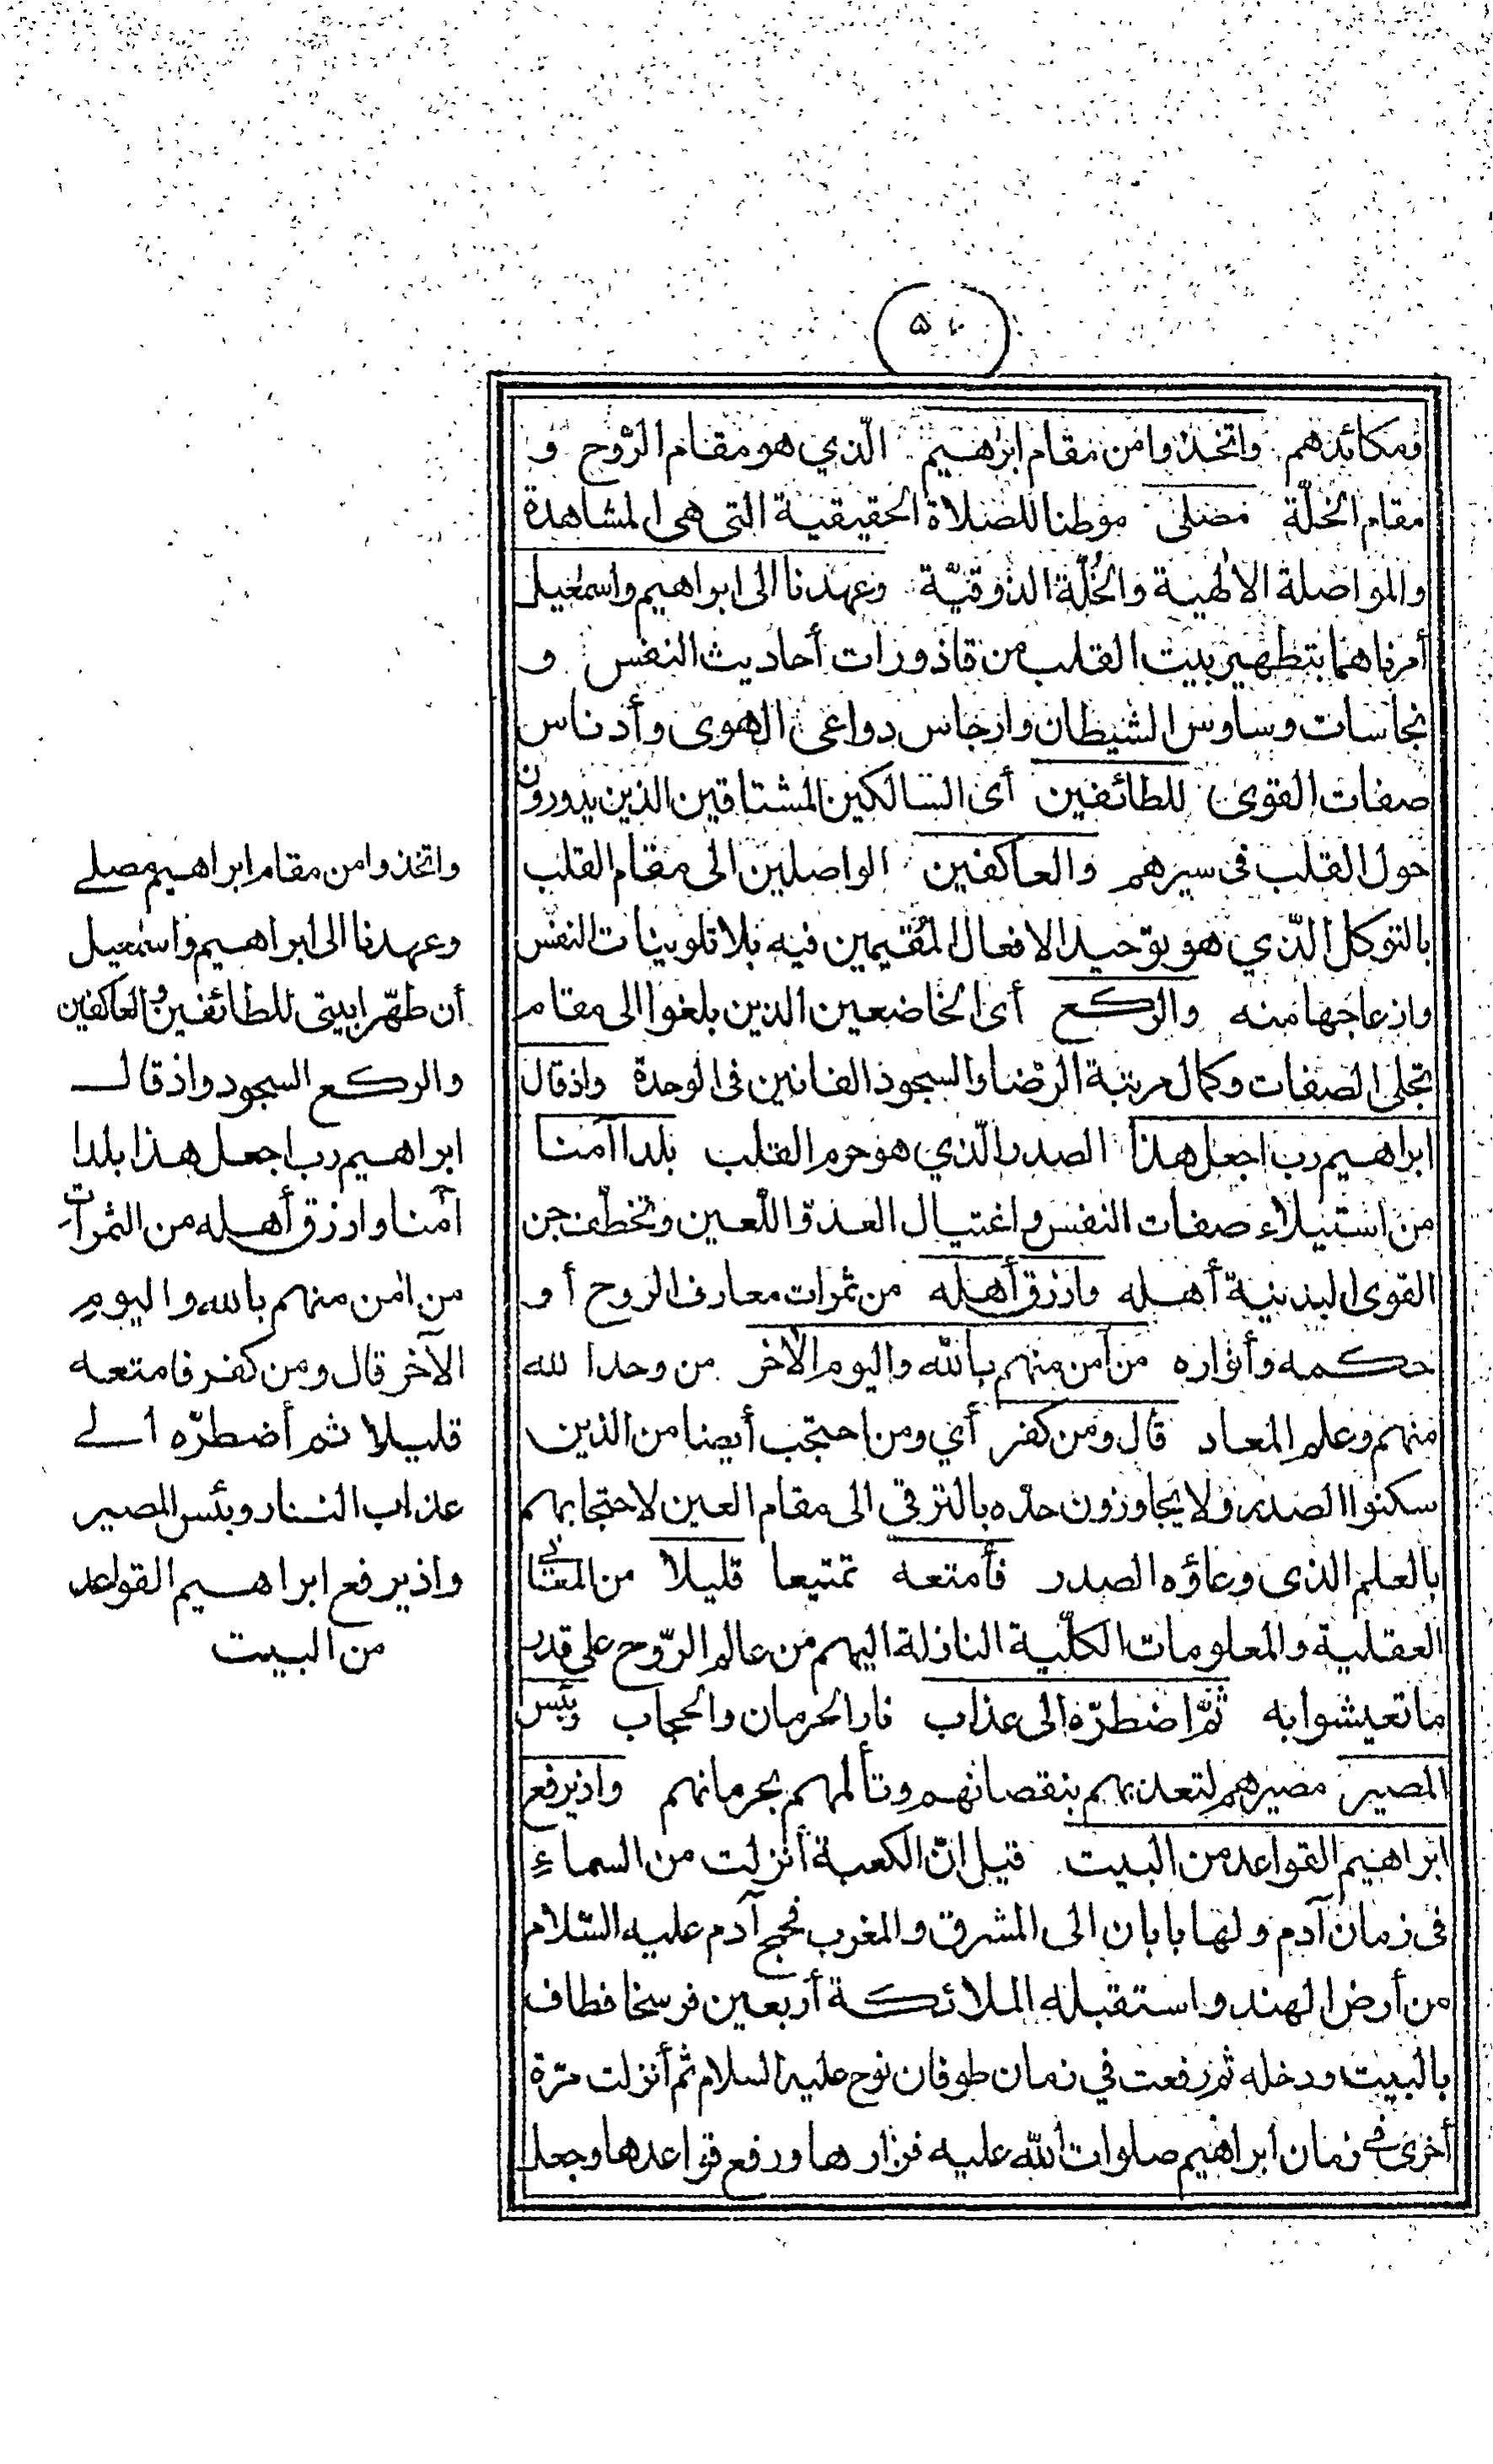 ٥٠
ومكائدهم واتخذوا من مقام ابرٰهيم الّذي هو مقام الرّوح و
مقام الخلّة مصلى موطنا للصلاة الحقيقية التى هى المشاهدة
والمواصلة الالٰهية والخُلّة الذوقيّة وعهدنا الى ابراهيم واسمٰعيل
أمرناهما بتطهير بيت القلب من قاذورات أحاديث النفس و
نجاسات وساوس الشيطان وارجاس دواعى الهوى وأدناس
صفات القوى للطائفين أى السالكين المشتاقين الذين يدورون
حول القلب فى سيرهم والعاكفين الواصلين الى مقام القلب
بالتوكل الّذي هو توحيد الافعال المُقيمين فيه بلا تلوينات النفس
وازعاجها منه والركع أى الخاضعين الذين بلغوا الى مقام
تجلى الصفات وكمال مرتبة الرضا والسجود الفانين فى الوحدة واذ قال
ابراهيم رب اجعل هذا الصدر الّذي هو حرم القلب بلدا آمنا
من استيلاء صفات النفس واغتيال العدوّ اللّعين وتخطّف جن
القوى البدنية أهله وارزق أهله من ثمرات معارف الروح أو
حكمه وأنواره من آمن منهم بالله واليوم الآخر من وحدا لله
منهم وعلم المعاد قال ومن كفر أي ومن احتجب أيضا من الذين
سكنوا الصدر ولا يجاوزون حدّه بالترقى الى مقام العين لاحتجابهم
بالعلم الذى وعاؤه الصدر فأمتعه تمتيعا قليلا من المعانى
العقلية والمعلومات الكلّية النازلة اليهم من عالم الرّوح على قدر
ما تعيشوا به ثمّ اضطرّه الى عذاب نار الحرمان والحجاب وبئس
المصير مصيرهم لتعذبهم بنقصانهم وتألمهم بحرمانهم واذ يرفع
ابراهيم القواعد من البيت قيل انّ الكعبة أنزلت من السماء
فى زمان آدم ولها بابان الى المشرق والمغرب فحج آدم عليه السّلام
من أرض الهند واستقبله الملائكة أربعين فرسخا فطاف
بالبيت ودخله ثم رفعت في زمان طوفان نوح عليه السلام ثم أنزلت مرّة
أخرى في زمان ابراهيم صلوات الله عليه فزارها ورفع قواعدها وجعل
واتخذوا من مقام ابراهيم مصلے
وعهدنا الى ابراهيم واسمٰعيل
أن طهّرا بيتى للطائفين والعاكفين
والركع السجود واذ قال
ابراهيم رب اجعل هذا بلدا
آمنا وارزق أهله من الثمرات
من اٰمن منهم بالله واليوم
الآخر قال ومن كفر فامتعه
قليلا ثم أضطرّه الے
عذاب النار وبئس المصير
واذ يرفع ابراهيم القواعد
من البيت